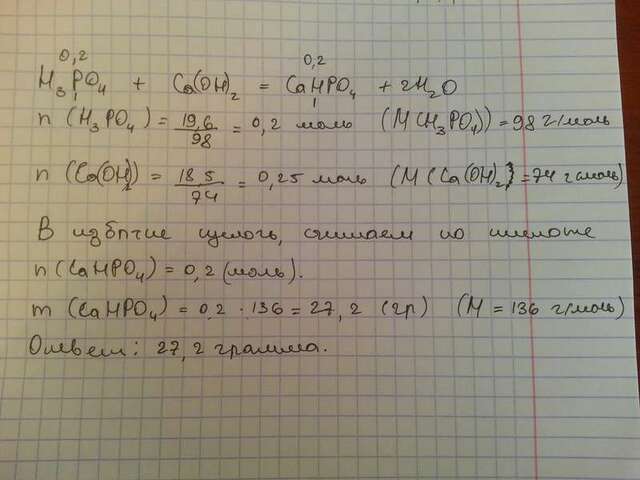 0,2 0,2
H₃PO₄ + Ca(OH)₂ = CaHPO₄ + 2H₂O
1 1
n (H₃PO₄) = 19,6/98 = 0,2 моль (M(H₃PO₄)) = 98 г/моль
n (Ca(OH)₂) = 18,5/74 = 0,25 моль (M(Ca(OH)₂) = 74 г/моль)
В избытке щелочь, считаем по кислоте
n (CaHPO₄) = 0,2 (моль).
m (CaHPO₄) = 0,2 · 136 = 27,2 (гр) (M = 136 г/моль)
Ответ: 27,2 грамма.